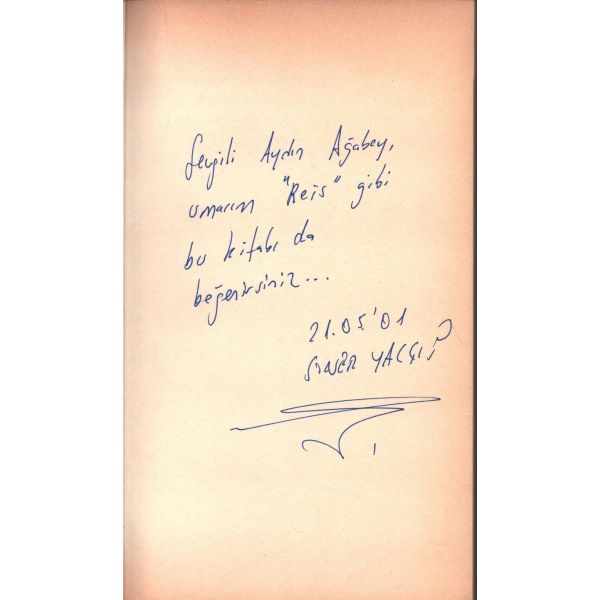 Sevgili Aydın Ağabey,
umarım "Reis" gibi
bu kitabı da
beğenirsiniz...
21.05.'01
SONER YALÇIN